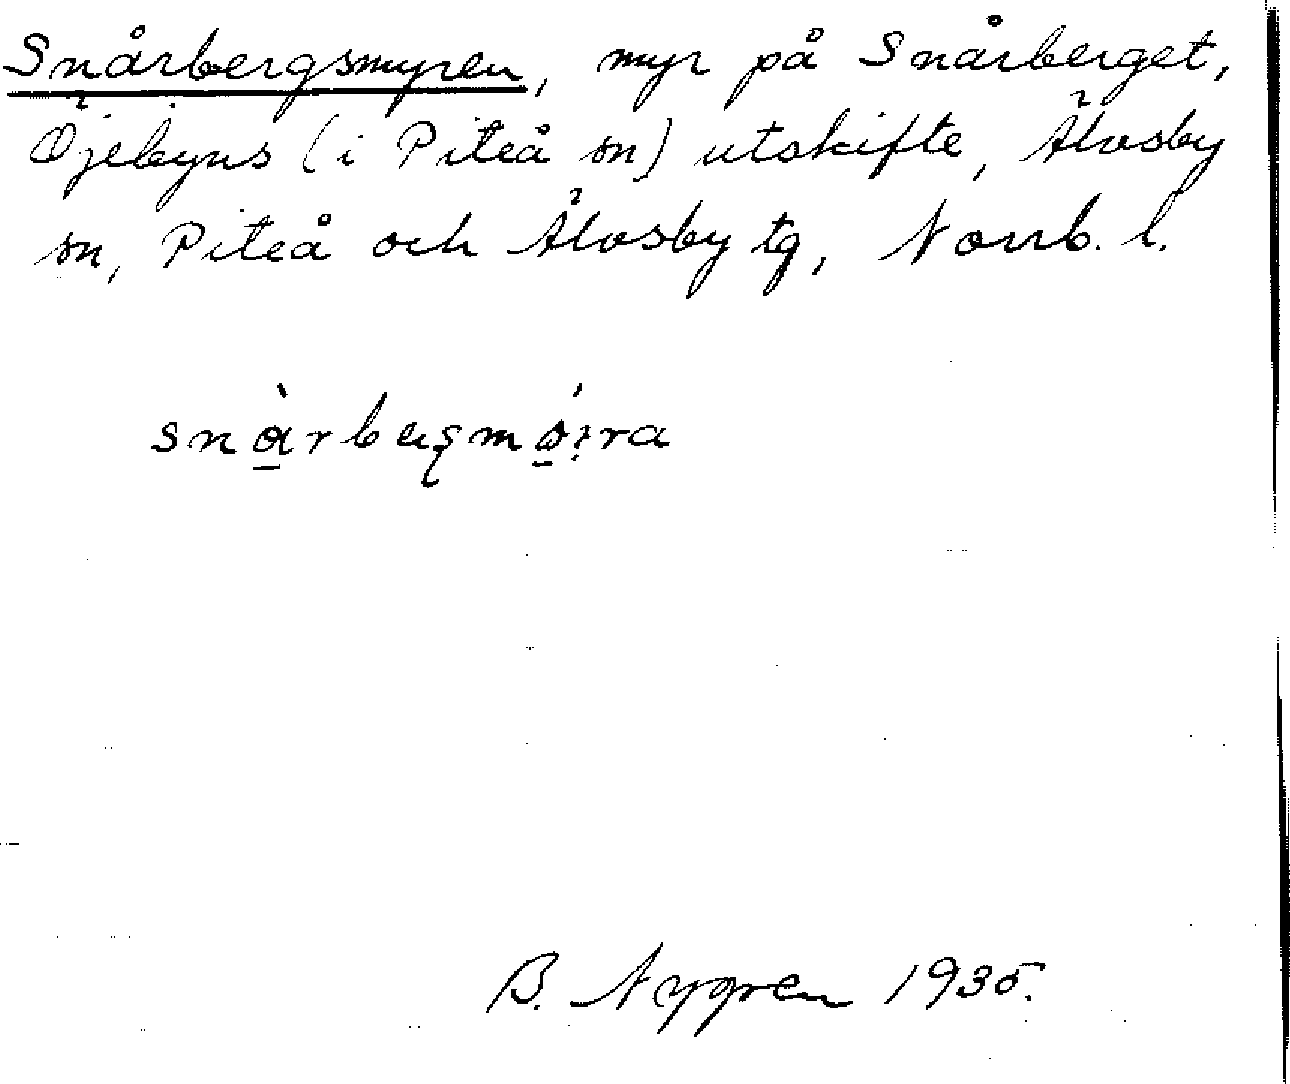 Snårbergsmyren, myr på Snårberget,
Öjebyns (i Piteå sn) utskifte, Älvsby
sn, Piteå och Älvsby tg, Norrb. l.
B. Nygren 1935.